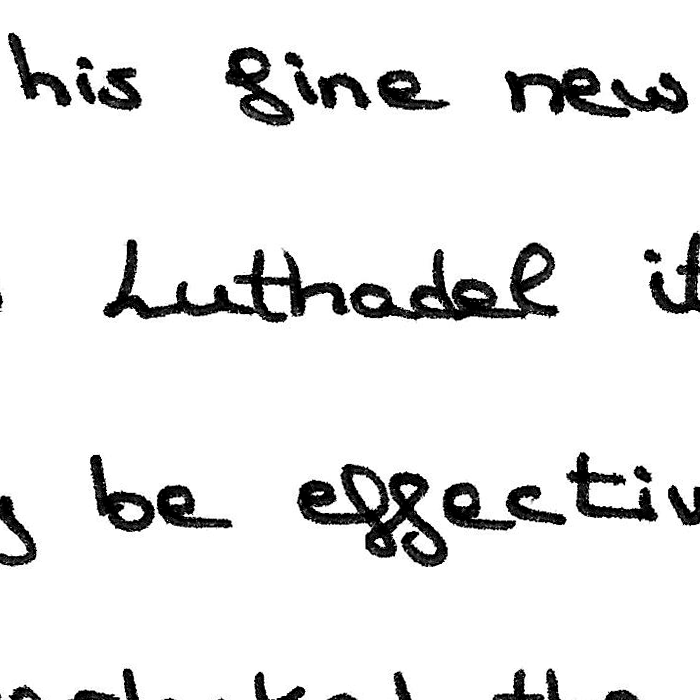 his fine new
Luthadel it
be effectiv
the